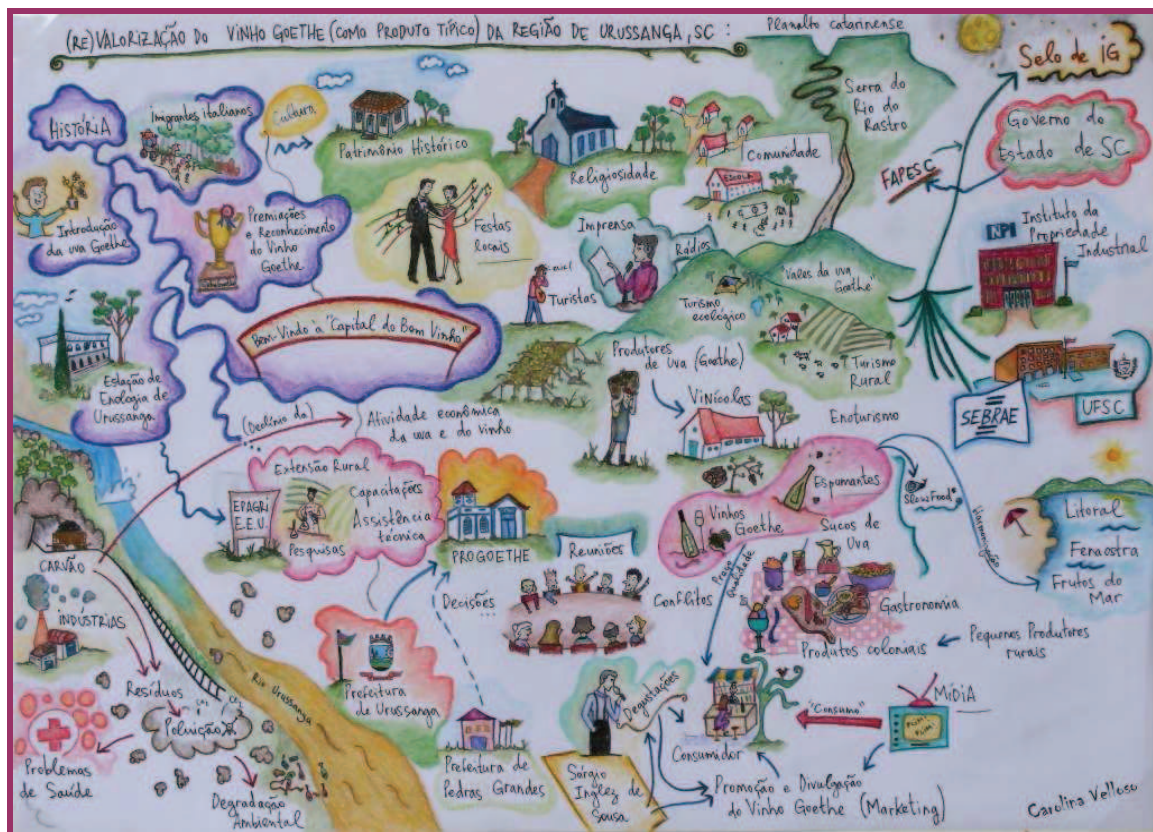 (RE)VALORIZAÇÃO DO VINHO GOETHE (COMO PRODUTO TÍPICO) DA REGIÃO DE URUSSANGA, SC:
Planalto catarinense
Selo de IG
HISTÓRIA
Imigrantes italianos
Cultura
Patrimônio Histórico
Religiosidade
Comunidade
ESCOLA
Serra do
Rio do
Rastro
Governo do
Estado de SC
FAPESC
Introdução
da uva Goethe
Premiações
e Reconhecimento
do Vinho
Goethe
Festas
locais
Imprensa
Rádios
Turistas
"Vales da uva
Goethe"
Turismo
ecológico
Turismo
Rural
INPI
Instituto da
Propriedade
Industrial
Estação de
Enologia de
Urussanga
Bem-Vindo à "Capital do Bom Vinho"
Produtores
de Uva (Goethe)
Vinícolas
Enoturismo
SEBRAE
UFSC
(Declínio da)
Atividade econômica
da uva e do vinho
Extensão Rural
Capacitações
Assistência
técnica
Pesquisas
EPAGRI
E.E.U.
PROGOETHE
Reuniões
Decisões
...
Conflitos
Espumantes
Vinhos
Goethe
Sucos de
Uva
Slow Food
Harmonização
Litoral
Fenaostra
Frutos do
Mar
Preço
Qualidade
Gastronomia
Produtos coloniais
Pequenos Produtores
rurais
CARVÃO
INDÚSTRIAS
Resíduos
Poluição
Problemas
de Saúde
Degradação
Ambiental
Rio Urussanga
Prefeitura
de Urussanga
Prefeitura de
Pedras Grandes
Degustações
Sérgio
Inglez de
Sousa
Consumidor
"Consumo"
MÍDIA
PLIM!
PLIM!
Promoção e Divulgação
do Vinho Goethe (Marketing)
Carolina Velloso